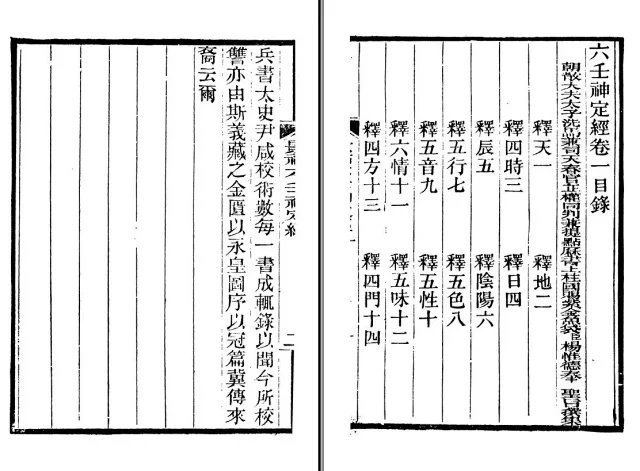 六壬神定經卷一目錄
朝散大夫太子洗馬兼司天春官正權同判兼提點厤書上柱國賜紫金魚袋臣楊惟德奉　聖旨撰集
釋天一　釋地二
釋四時三　釋日四
釋辰五　釋陰陽六
釋五行七　釋五色八
釋五音九　釋五性十
釋六情十一　釋五味十二
釋四方十三　釋四門十四
兵書太史尹咸校術數每一書成輒錄以聞今所校
讐亦由斯義藏之金匱以永皇圖序以冠篇冀傳來
裔云爾